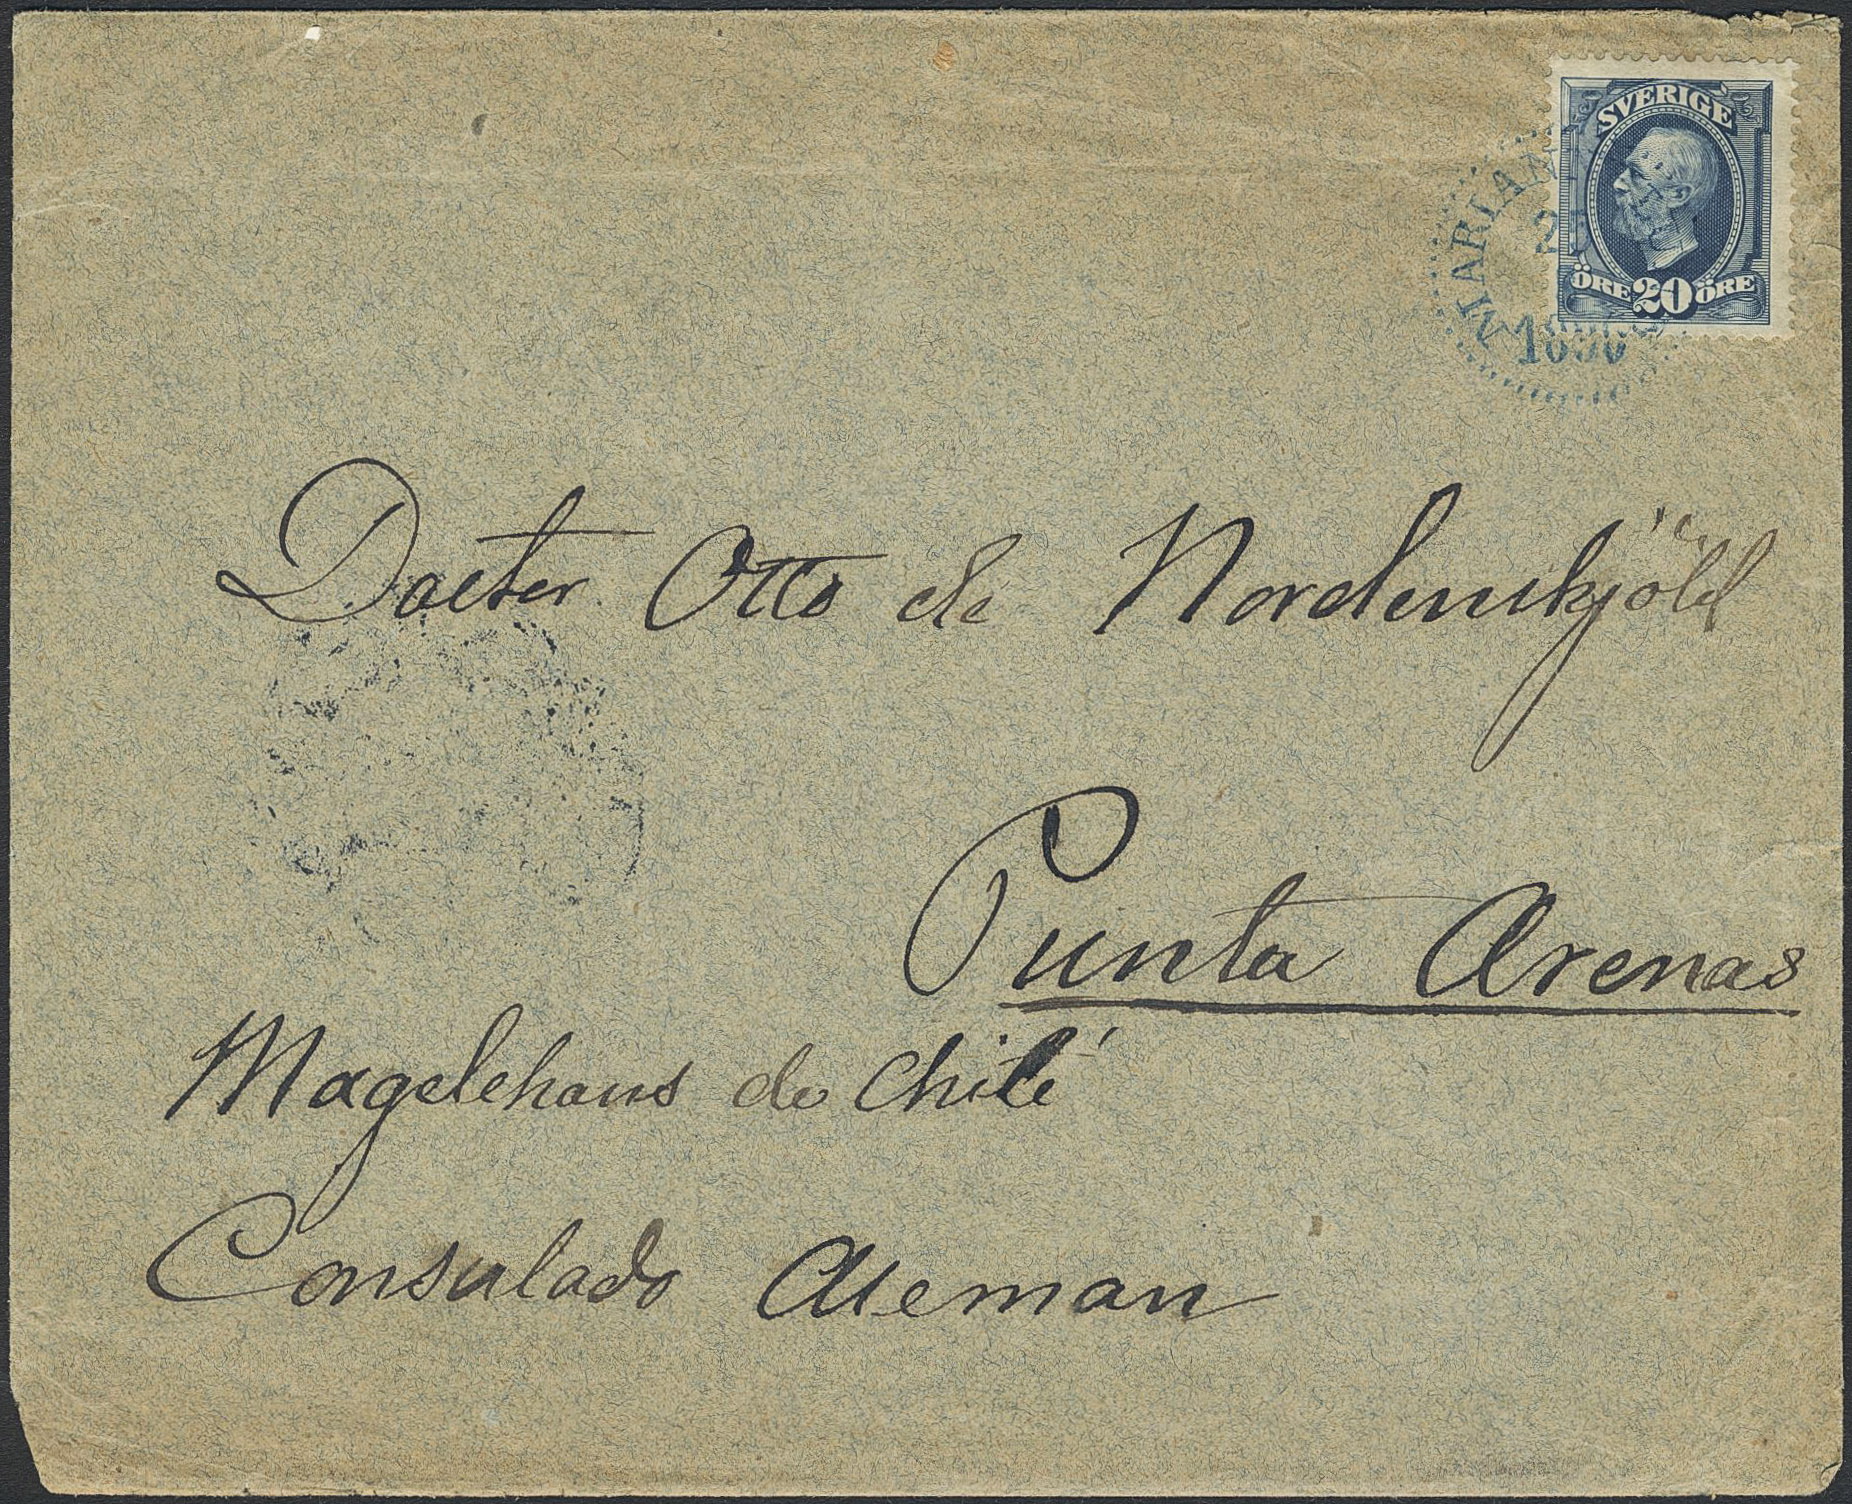 SVERIGE
ÖRE 20 ÖRE
MARIAN
1896
Docter Otto de Nordenskjöld
Punta Arenas
Magelehans de Chilé
Consulado Aleman